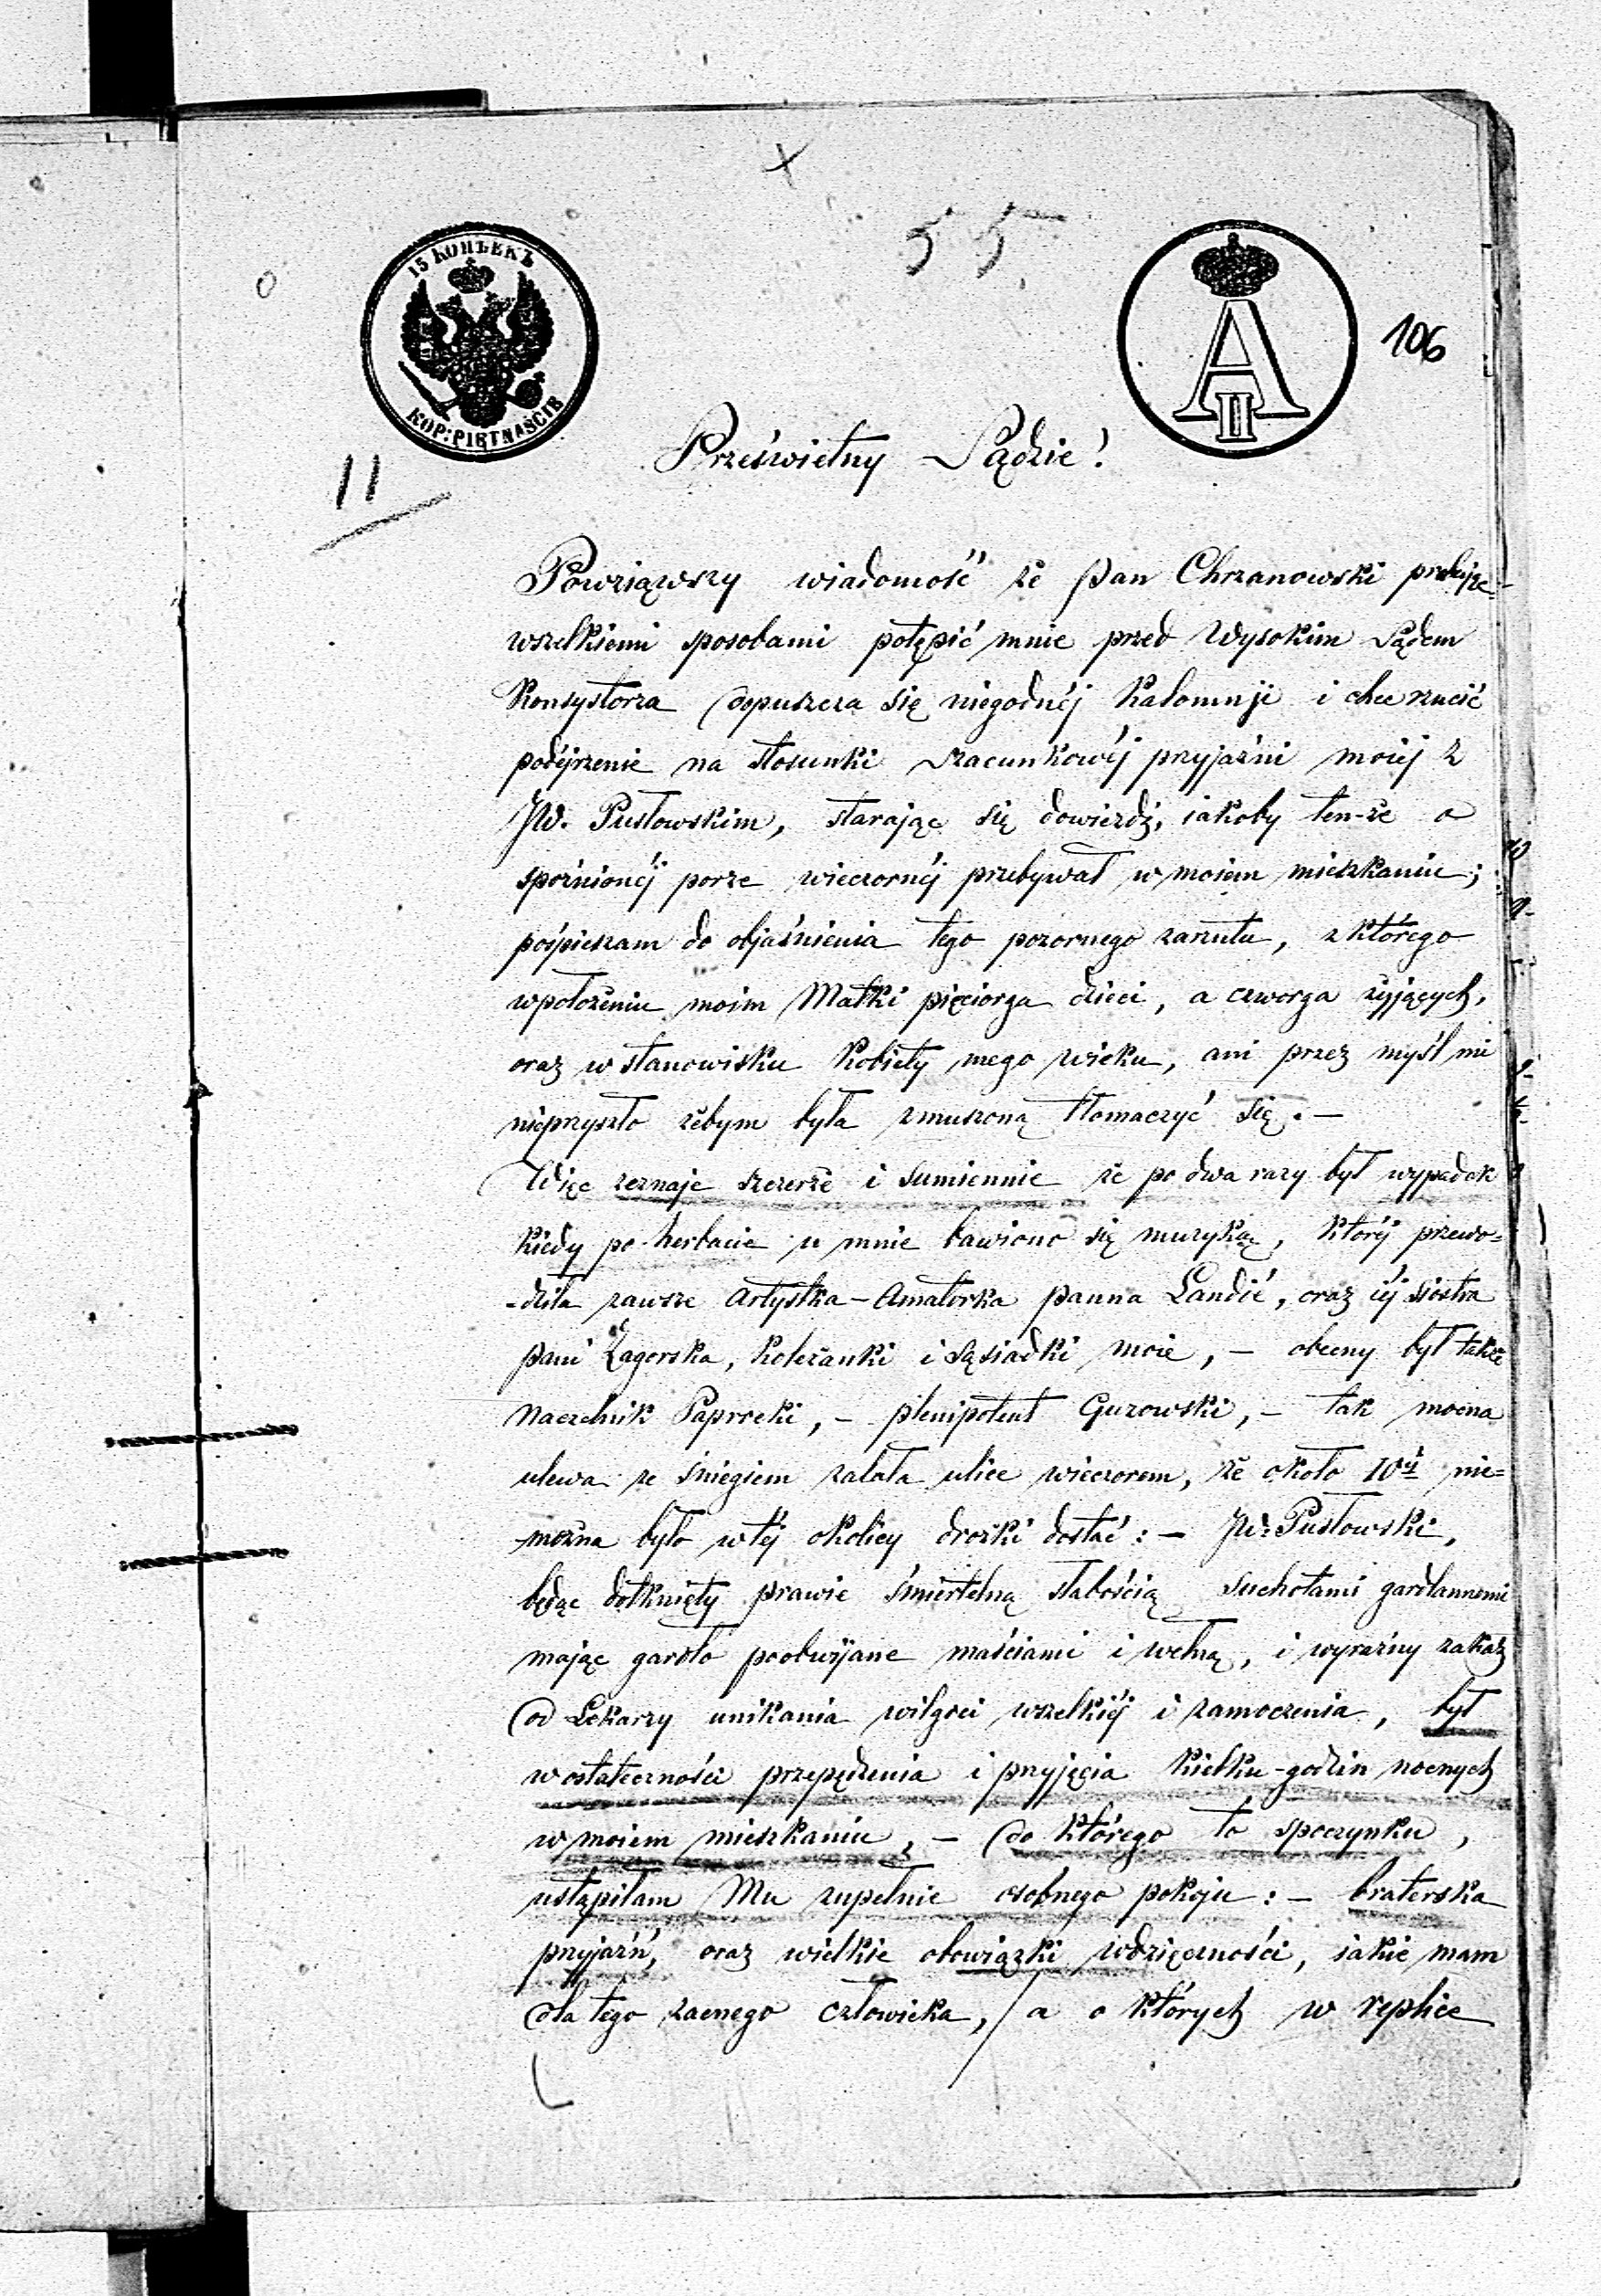 55
15 КОПѢЕКЪ
KOP: PIĘTNAŚCIE
A II
106
11
Prześwietny Sądzie!
Powziąwszy wiadomość że Pan Chrzanowski
wszelkiemi sposobami potępić mnie przed Wysokim Sądem
Konsystorza dopuszcza się niegodnéj Kalomnji i chce rzucić
podéjrzenie na stosunki szacunkowéj przyjaźni moiéj z
JW. Pusłowskim, starając się dowieźdź, iakoby ten-że o
spóźnionéj porze wieczornéj przebywał w moiem mieszkaniu;
pośpieszam do objaśnienia tego pozornego zarzutu, z którego
wpołożeniu moim Matki pięciorga dzieci, a czworga żyjących,
oraz w stanowisku Kobiety mego wieku, ani przez myśl mi
nieprzyszło żebym była zmuszoną tłomaczyć się. —
Więc zeznaję szczerze i sumiennie że po dwa razy był wypadek
kiedy po herbacie u mnie bawiono się muzyką, któréj przewo=
-dziła zawsze Artystka-Amatorka panna Landié, oraz iéj siostra
pani Zagorska, koleżanki i sąsiadki moie, — obecny był także
Naczelnik Paprocki, — plenipotent Gurowski, — tak mocna
ulewa ze śniegiem zalała ulice wieczorem, że około 10éj nie=
można było w téj okolicy drożki dostać: — JW: Pusłowski,
będąc dotknięty prawie śmiertelną słabością suchotami gardlannemi
mając gardło poobwijane maściami i wełną, i wyraźny zakaz
od Lekarzy unikania wilgoci wszelkiéj i zamoczenia, był
w ostateczności przepędzenia i przyjęcia kielku-godzin nocnych
w moiem mieszkaniu, — do którego to spoczynku,
ustąpiłam Mu zupełnie osobnego pokoju: — braterska
przyjaźń, oraz wielkie obowiązki wdzięczności, iakie mam
dla tego zacnego człowieka, / a o których w replice